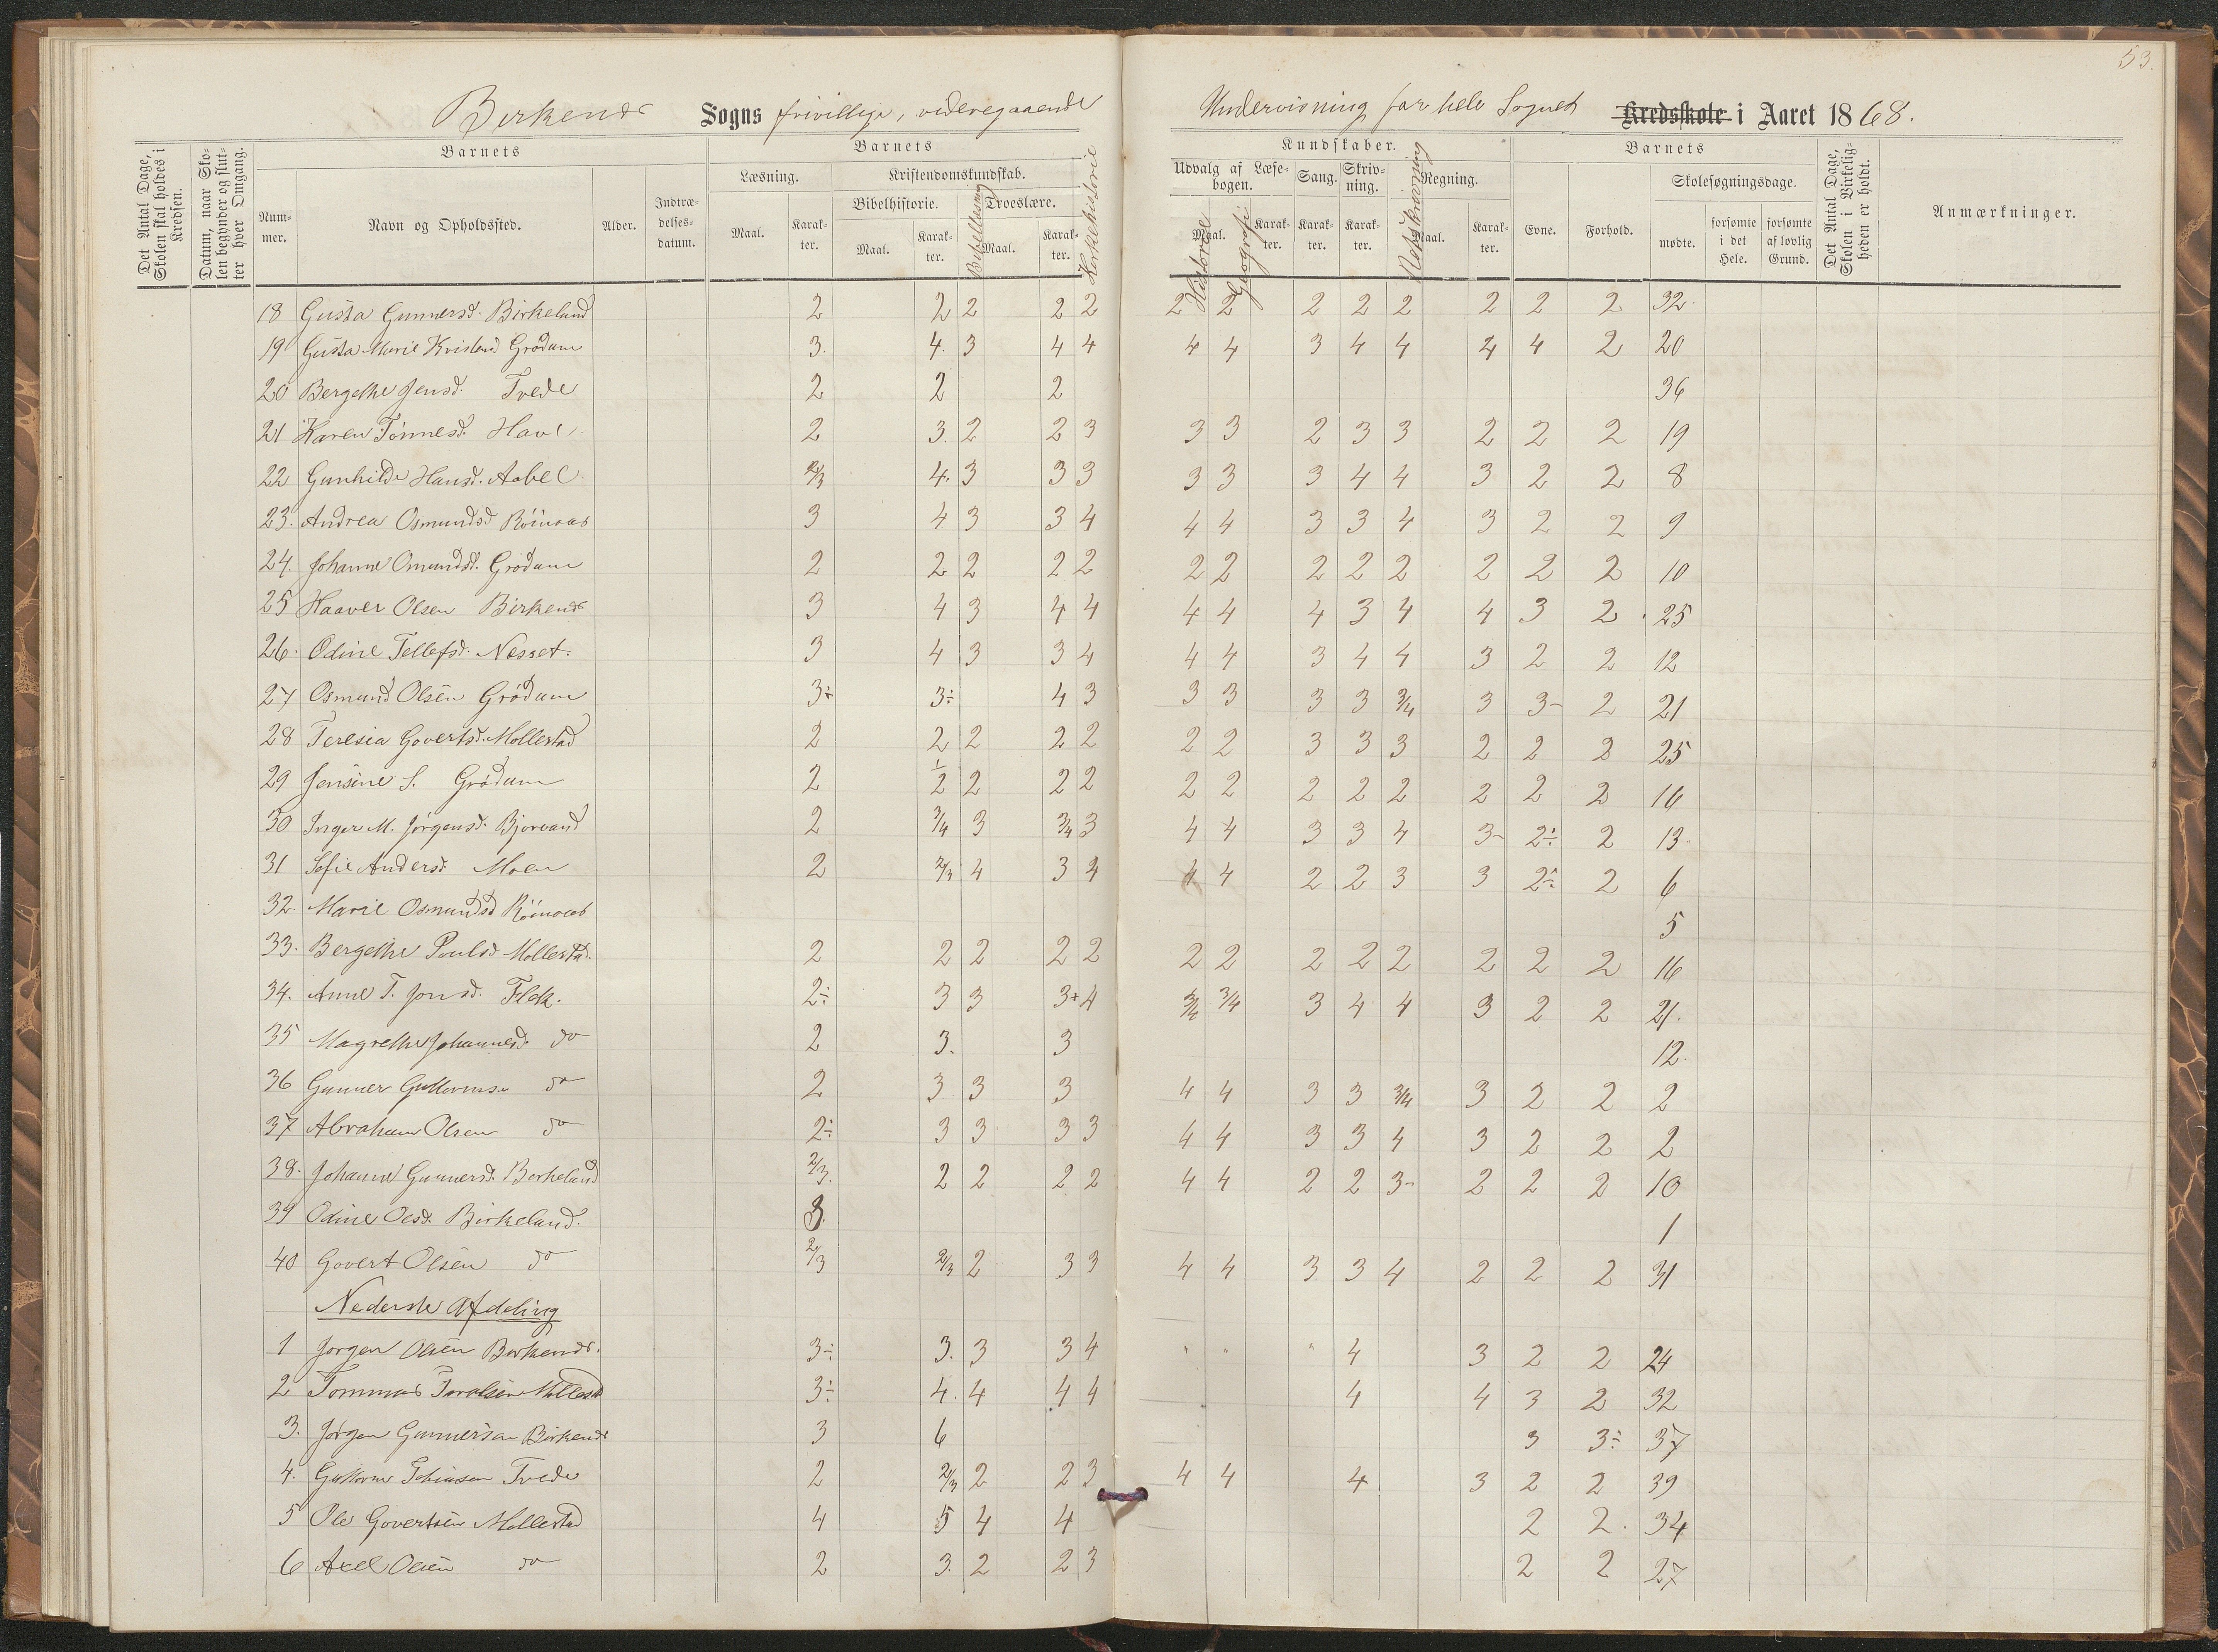 53.
Birkenes Sogns frivillige, videregaaende Undervisning for hele Sognet Kredsskole i Aaret 1868.
Det Antal Dage, Skolen skal holdes i Kredsen.
Datum, naar Skolen begynder og slutter hver Omgang.
Barnets
Nummer.
Navn og Opholdssted.
Alder.
Indtrædelsesdatum.
Barnets
Læsning.
Maal.
Karakter.
Kristendomskundskab.
Bibelhistorie.
Maal.
Karakter.
Bibellæsning
Troeslære.
Maal.
Karakter.
Kirkehistorie
Kundskaber.
Udvalg af Læsebogen.
Maal.
Historie
Geografi
Karakter.
Sang.
Karakter.
Skrivning.
Karakter.
Retskrivning
Regning.
Maal.
Karakter.
Barnets
Evne.
Forhold.
Skolesøgningsdage.
mødte.
forsømte i det Hele.
forsømte af lovlig Grund.
Det Antal Dage, Skolen i Virkeligheden er holdt.
Anmærkninger.
18 Gusta Gunnersd. Birkeland 2 2 2 2 2 2 2 2 2 2 2 2 2 32
19 Gusta Marie Kristend Grödum 3. 4. 3 4 4 4 4 3 4 4 4 4 2 20
20 Bergethe Jensd. Tvede 2 2 2 36
21 Karen Tönnesd. Have 2 3. 2 2 3 3 3 2 3 3 2 2 2 19
22 Gunhilde Hansd. Aabel 2/3 4. 3 3 3 3 3 3 4 4 3 2 2 8
23. Andrea Osmundsd Röinaas 3 4 3 3 4 4 4 3 3 4 3 2 2 9
24. Johanne Omundsd. Grödum 2 2 2 2 2 2 2 2 2 2 2 2 2 10
25 Haaver Olsen Birkenes 3 4 3 4 4 4 4 4 3 4 4 3 2 25
26. Odine Tellefsd. Nesset. 3 4 3 3 4 4 4 3 4 4 3 2 2 12
27 Osmund Olsen Grödum 3÷ 3÷ 4 3 3 3 3 3 3/4 3 3- 2 21
28 Teresia Govertsd. Mollestad 2 2 2 2 2 2 2 3 3 3 2 2 2 25
29 Jensine S. Grödum 2 1/2 2 2 2 2 2 2 2 2 2 2 2 16
30 Inger M. Jörgensd. Bjorvand 2 3/4 3 3/4 3 4 4 3 3 4 3- 2÷ 2 13.
31 Sofie Andersd Moen 2 2/3 4 3 4 4 4 2 2 3 3 2÷ 2 6
32. Marie Osmundsd Röinaas 5
33. Bergethe Poulsd Mollestad. 2 2 2 2 2 2 2 2 2 2 2 2 2 16
34. Anne T. Jonsd. Flak. 2÷ 3 3 3+ 4 3/4 3/4 3 4 4 3 2 2 21.
35 Magrethe Johannesd. do 2 3. 3 12.
36 Gunner Guttormsen do 2 3 3 3 4 4 3 3 3/4 3 2 2 2
37 Abraham Olsen do 2÷ 3 3 3 3 4 4 3 3 4 3 2 2 2
38. Johanne Gunnersd. Berkeland 2/3. 2 2 2 2 4 4 2 2 3- 2 2 2 10
39 Odine Olsd. Birkeland. 3. 1
40 Govert Olsen do 2/3 2/3 2 3 3 4 4 3 3 4 2 2 2 31
Nederste Afdeling
1 Jorgen Olsen Birkenes. 3÷ 3. 3 3 4 " " " 4 3 2 2 24
2 Tommas Mollestad 3÷ 4. 4 4 4 4 4 3 2 32
3. Jörgen Gunnersen Birkenes 3 6 3 3÷ 37
4. Guttorm Tvede 2 2/3 2 2 3 4 4 4. 3 2 2 39
5 Ole Govertsen Mollestad 4 5 4 4 2 2. 34
6 Axel Olsen do 2 3. 2 2 3 2 2 27